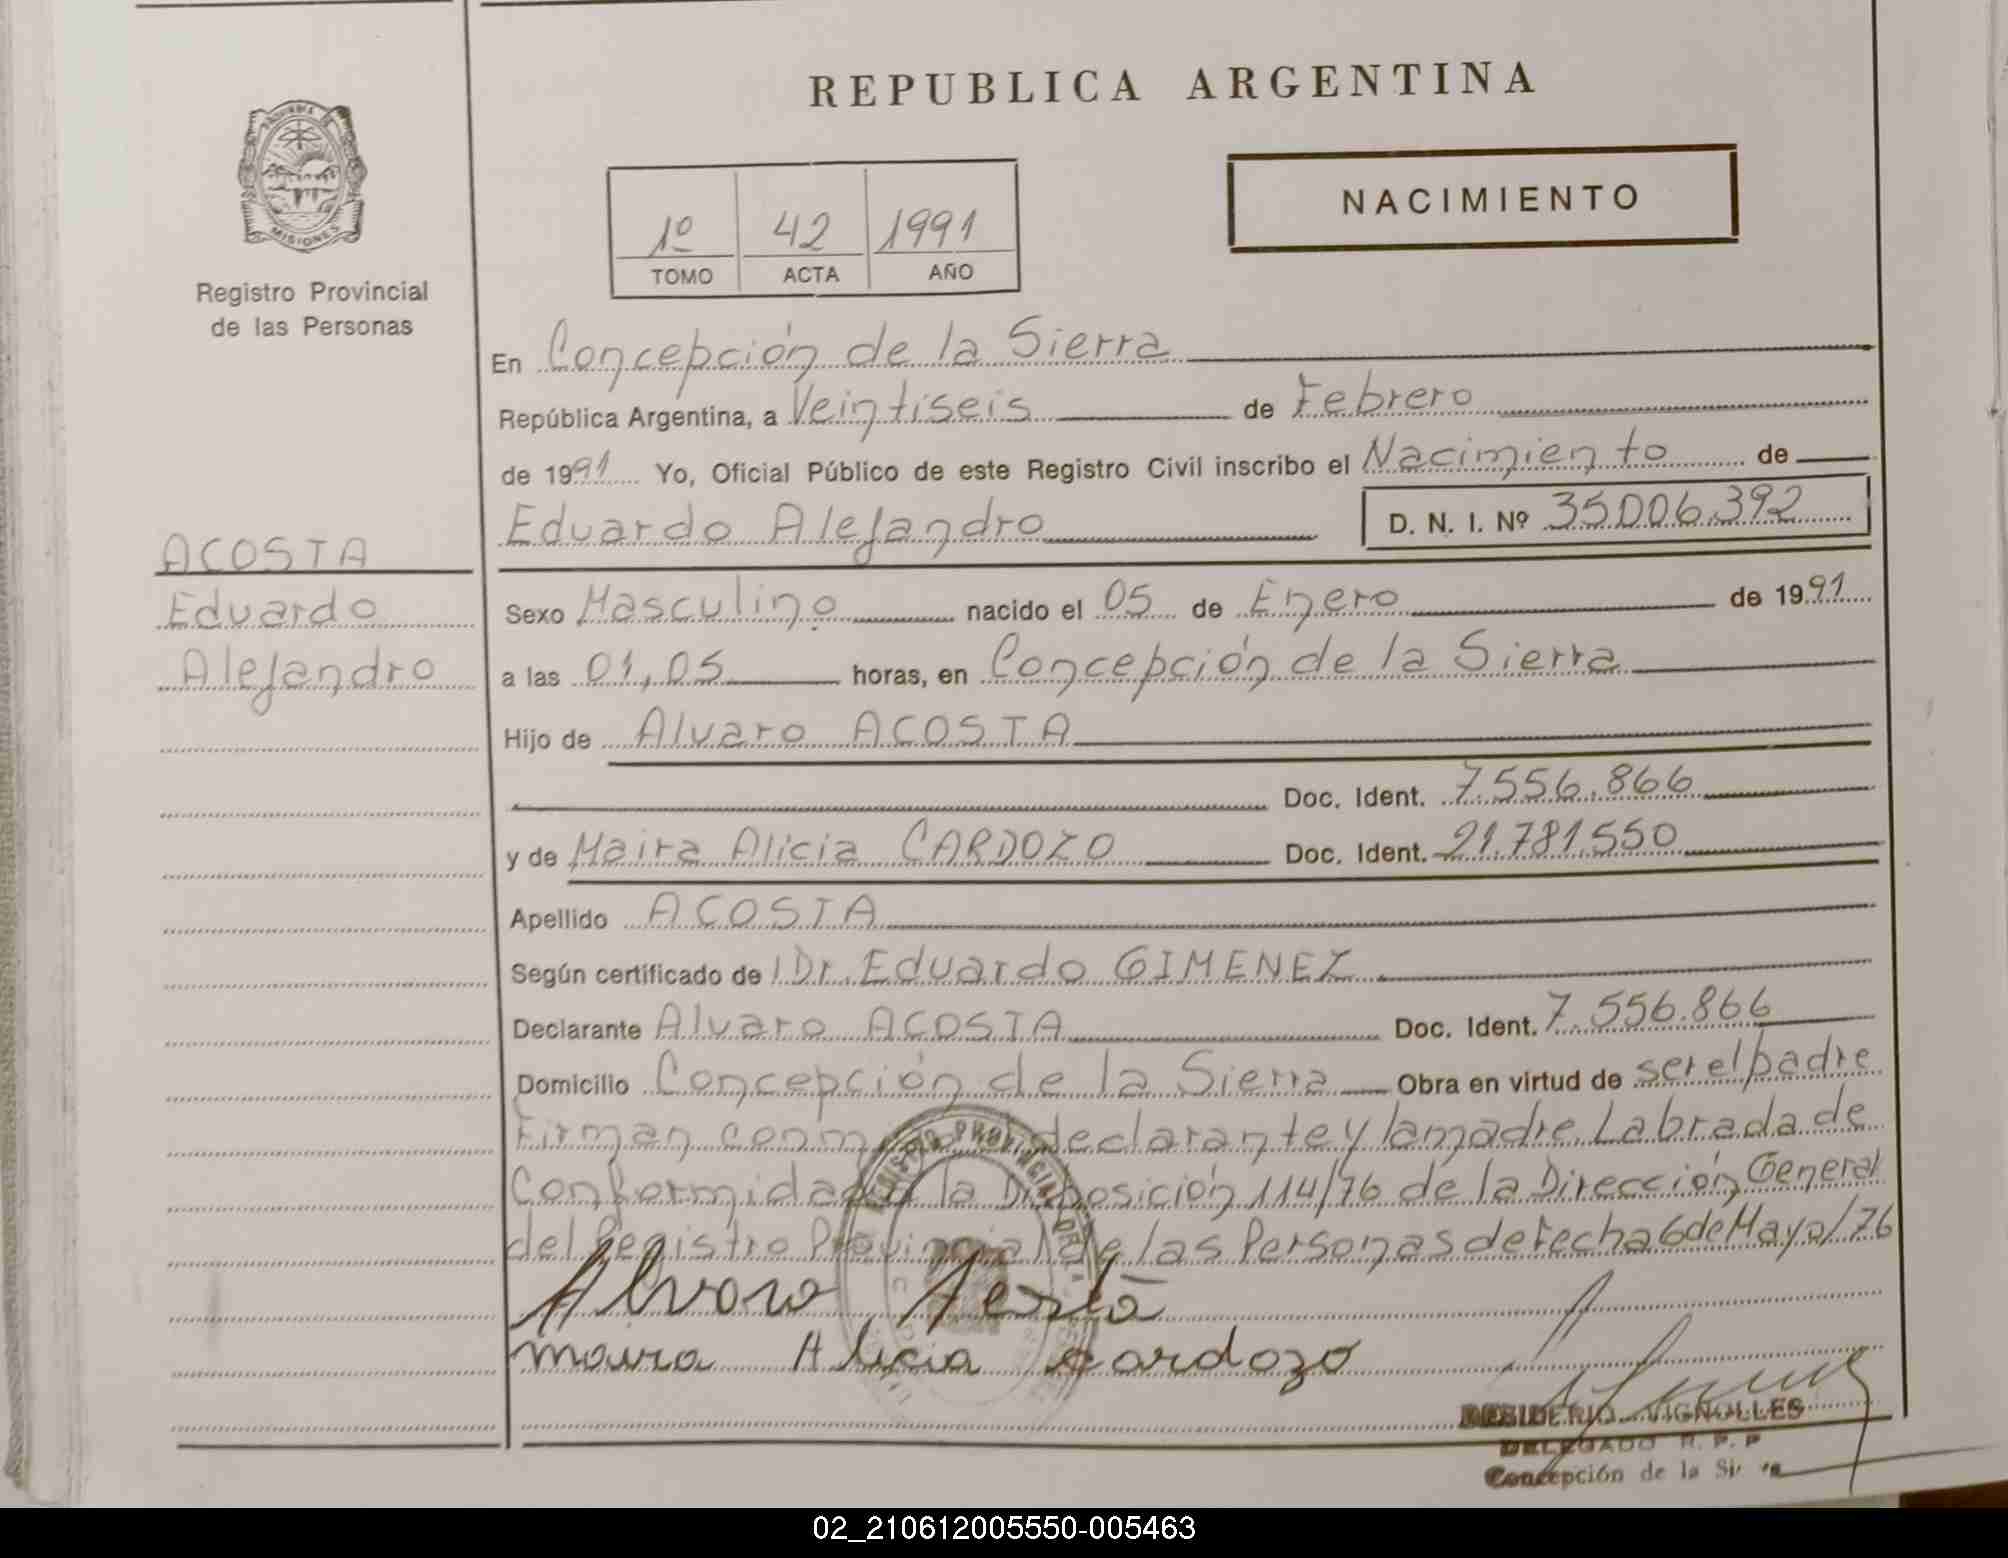 REPUBLICA ARGENTINA
PROVINCIA
MISIONES
Registro Provincial
de las Personas
NACIMIENTO
1º 42 1991
TOMO ACTA AÑO
En Concepción de la Sierra
República Argentina, a Veintiseis de Febrero
de 1991 Yo, Oficial Público de este Registro Civil inscribo el Nacimiento de
Eduardo Alejandro D. N. I. Nº 35.006.392
ACOSTA
Eduardo
Alejandro
Sexo Masculino nacido el 05 de Enero de 1991
a las 01,05 horas, en Concepción de la Sierra
Hijo de Alvaro ACOSTA
Doc. Ident. 7.556.866
y de Maira Alicia CARDOZO Doc. Ident. 21.781.550
Apellido ACOSTA
Según certificado de Dr. Eduardo GIMENEZ
Declarante Alvaro ACOSTA Doc. Ident. 7.556.866
Domicilio Concepción de la Sierra Obra en virtud de ser el padre
Firman declarante y la madre. Labrada de
Conformidad a la Disposición 114/76 de la Dirección General
del Registro Provincial de las Personas de Fecha 6 de Mayo/76
REGISTRO PROVINCIAL DE LAS
Alvaro Acosta
Maira Alicia Cardozo
DESIDERIO VIGNOLLES
DELEGADO R. P. P
Concepción de la Sierra
02_210612005550-005463